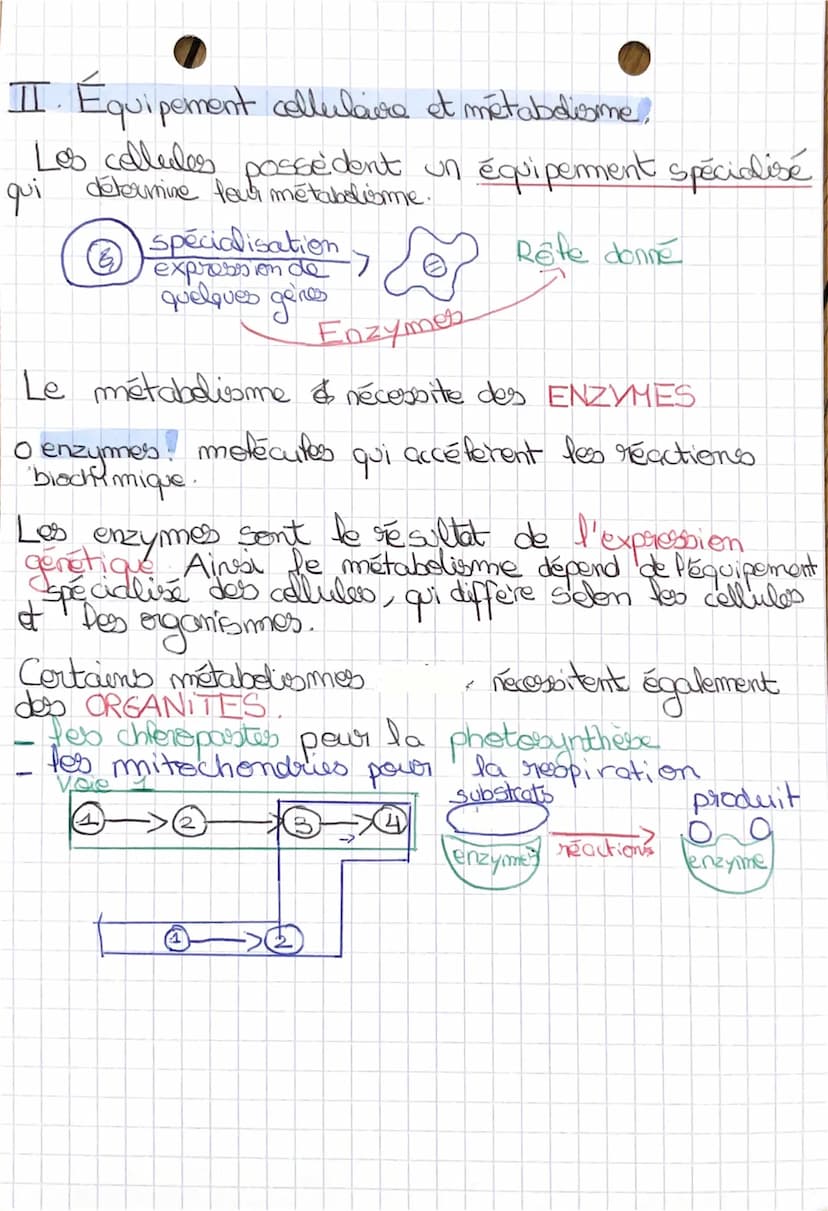 II. Équipement cellulaire et métabolisme.
Les cellules possèdent un équipement spécialisé
qui détermine leur métabolisme.
spécialisation
expression de
quelques gènes
Rôle donné
Enzymes
Le métabolisme nécessite des ENZYMES
o enzymes: molécules qui accélèrent les réactions
biochimique.
Les enzymes sont le résultat de l'expression
génétique. Ainsi le métabolisme dépend de l'équipement
spécialisé des cellules, qui diffère selon les cellules
et les organismes.
Certains métabolismes , nécessitent également
des ORGANITES.
- les chloroplastes pour la photosynthèse
- les mitochondries pour la respiration
Voie 1
1 → 2 → 3 → 4
substrats
produit
enzymes
réactions
enzyme
1 → 2